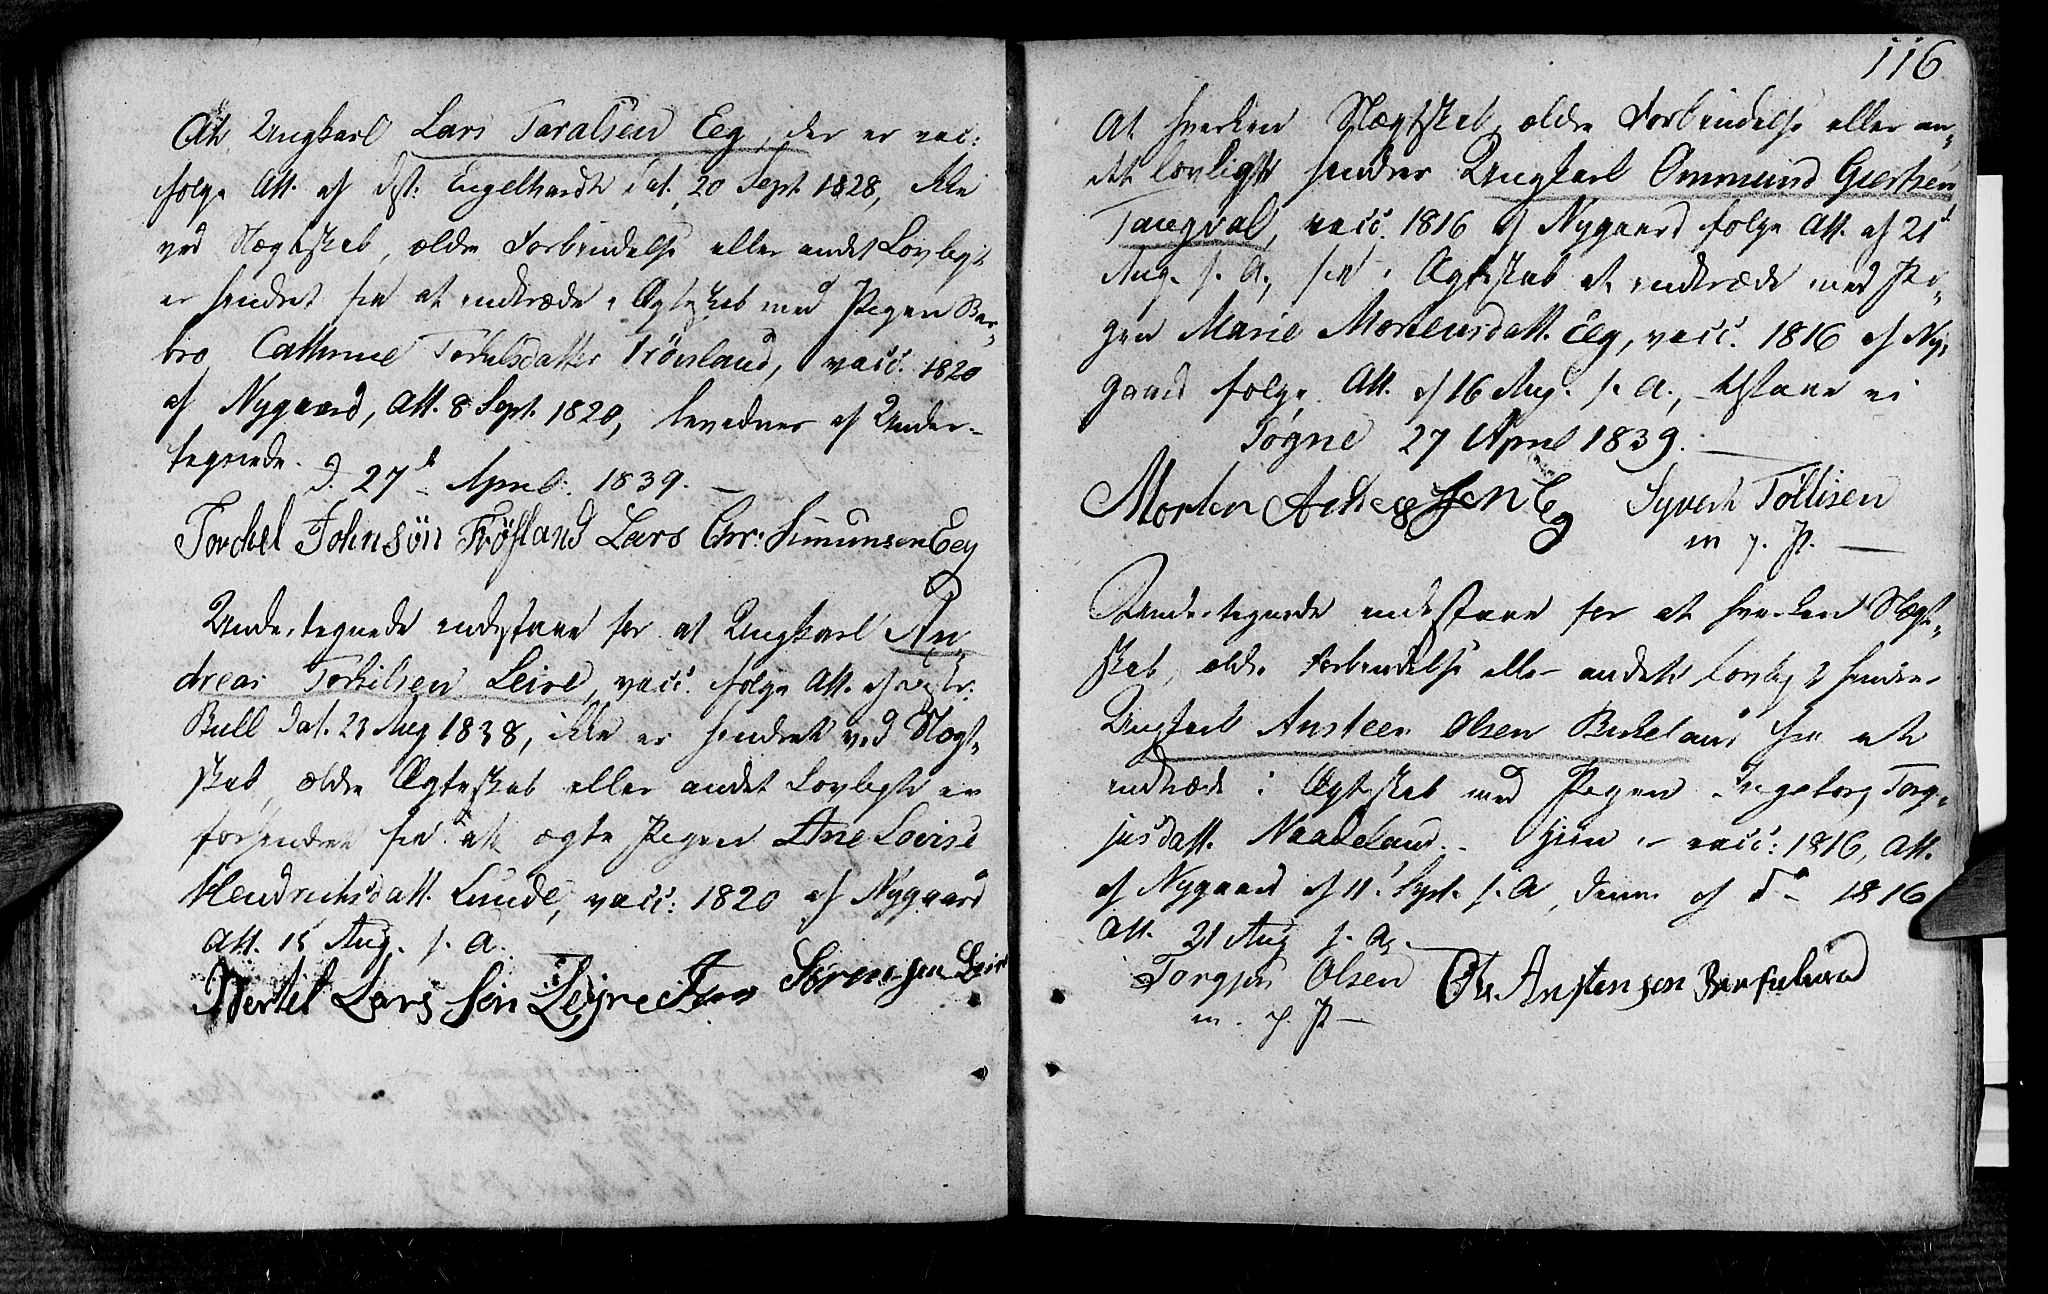 At Ungkarl Lars Taralsen Eeg, der er vac:
følge Att. af Dst. Engelhardt dat. 20 Sept 1828, ikke
ved Slægtskab, ældre Forbindelse eller andet Lovligt
er hindret fra at indtræde i Ægteskab med Pigen Bar-
bro Cathrine Torkelsdatter Frövland, vacc. 1820
af Nygaard, Att. 8 Sept. 1820, bevidnes af Under-
tegnede. D. 27d April. 1839. —
Torchel Johnsön Fröfland Lars Chr: Simunsen Eeg
Undertegnede indestaae for at Ungkarl An-
dreas Torkilsen Leire, vacc. følge Att. af
Bull dat. 23 Aug 1838, ikke er hindret ved Slægt-
skab, ældre Ægteskab eller andet Lovligt er
forhindret fra at ægte Pigen Ane Lovise
Hendrichsdatt. Lunde, vacc: 1820 af Nygaard
Att. 15 Aug. s. A.
Bertil Lars Sön Leire Sörensen Leire
116
At hverken Slægtskab, ældre Forbindelse eller an-
det lovligt hindrer Ungkarl Ommund Giertsen
Tangval, vacc. 1816 af Nygaard følge Att. af 21d
Aug. s. A., fra i Ægteskab at indtræde med Pi-
gen Marie Mortensdatt. Eeg, vacc. 1816 af Ny-
gaard følge Att. af 16 Aug. s. A., indestaae vi
Sogne 27 April 1839.
Morten Eg Syvert Tollisen
m. f. P. —
Undertegnede indestaae for at hverken Slægt-
skab, ældre Forbindelse eller andet lovligt hindrer
Ungkarl Ansteen Olsen Birkeland fra at
indtræde i Ægteskab med Pigen Ingeborg Torg-
jusdatt. Naadeland. Hun er vacc: 1816, Att.
af Nygaard af 11 Sept. s. A, denne af do 1816
Att. 21 Aug s. A.
Torgjus Olsen Ole Anstensen Birkeland
m. f. P —